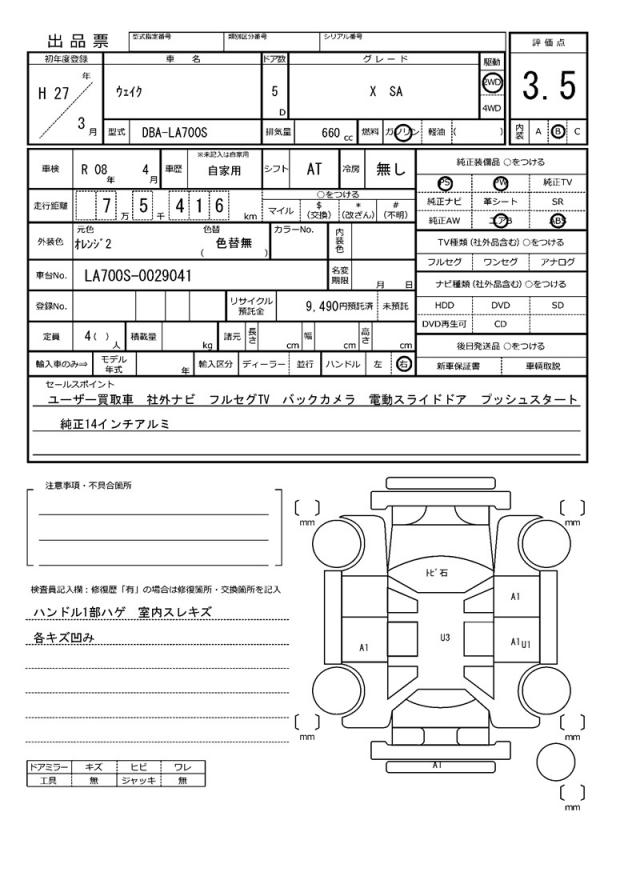 出品票 型式指定番号 類別区分番号 シリアル番号
評価点
3.5
内装 A B C
初年度登録 車名 ドア数 グレード 駆動
H 27 年 3 月
ウェイク 5 D X SA 2WD 4WD
型式 DBA-LA700S 排気量 660 cc 燃料 ガソリン 軽油 ( )
車検 R 08 年 4 月 車歴 ※未記入は自家用 自家用 シフト AT 冷房 無し
走行距離 7 万 5 千 4 1 6 km
○をつける
マイル $ (交換) * (改ざん) # (不明)
外装色 元色 オレンジ2 色替 色替無 ( ) カラーNo. 内装色
車台No. LA700S-0029041 名変期限 月 日
登録No. リサイクル預託金 9,490円預託済 未預託
定員 4( ) 人 積載量 kg 諸元 長さ cm 幅 cm 高さ cm
輸入車のみ⇒ モデル年式 年 輸入区分 ディーラー 並行 ハンドル 左 右
純正装備品 ○をつける
PS PW 純正TV
純正ナビ 革シート SR
純正AW エアB ABS
TV種類 (社外品含む) ○をつける
フルセグ ワンセグ アナログ
ナビ種類 (社外品含む) ○をつける
HDD DVD SD
DVD再生可 CD
後日発送品 ○をつける
新車保証書 車輌取説
セールスポイント
ユーザー買取車 社外ナビ フルセグTV バックカメラ 電動スライドドア プッシュスタート
純正14インチアルミ
注意事項・不具合箇所
検査員記入欄：修復歴「有」の場合は修復箇所・交換箇所を記入
ハンドル1部ハゲ 室内スレキズ
各キズ凹み
ドアミラー キズ ヒビ ワレ
工具 無 ジャッキ 無
mm
mm
トビ石
A1
U3
A1
A1 U1
mm
mm
A1
mm